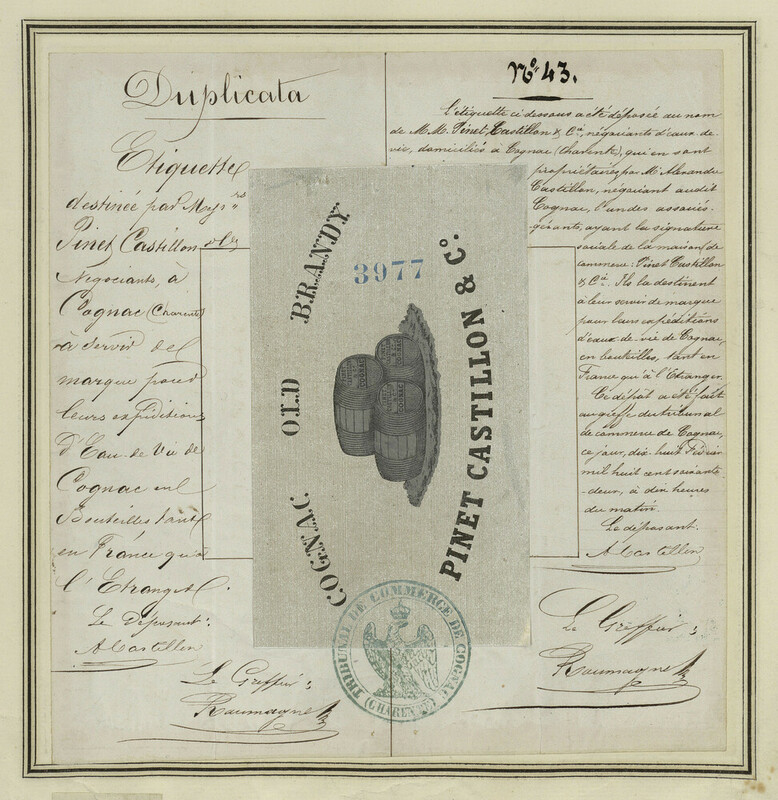 Duplicata
Etiquette
destinée par Mess.rs
Pinet Castillon & Cie
Negociants, à
Cognac (Charente)
à servir de
marque pour
leurs expéditions
d'Eau-de-Vie de
Cognac en
Bouteilles tant
en France qu'à
l'Etranger.
Le Déposant:
A Castillon
Le Greffier:
No. 43.
l'étiquette ci dessous a été déposée au nom
de M.M. Pinet, Castillon & Cie, négociants d'eaux-de-
vie, domiciliés à Cognac (Charente), qui en sont
propriétaires, par Mr. Alexandre
Castillon, négociant audit
Cognac, l'un des associés-
gérants, ayant la signature
sociale de la maison de
commerce: Pinet Castillon
& Cie. Ils la destinent
à leur servir de marque
pour leurs expéditions
d'eaux-de-vie de Cognac,
en bouteilles, tant en
France qu'à l'Etranger.
Ce dépôt a été fait
au greffe du tribunal
de commerce de Cognac,
ce jour, dix-huit Février
mil huit cent soixante-
deux, à dix heures
du matin.
Le déposant:
A Castillon
Le Greffier:
COGNAC OLD BRANDY
3977
PINET CASTILLON & Co.
COGNAC
COGNAC
TRIBUNAL DE COMMERCE DE COGNAC
(CHARENTE)